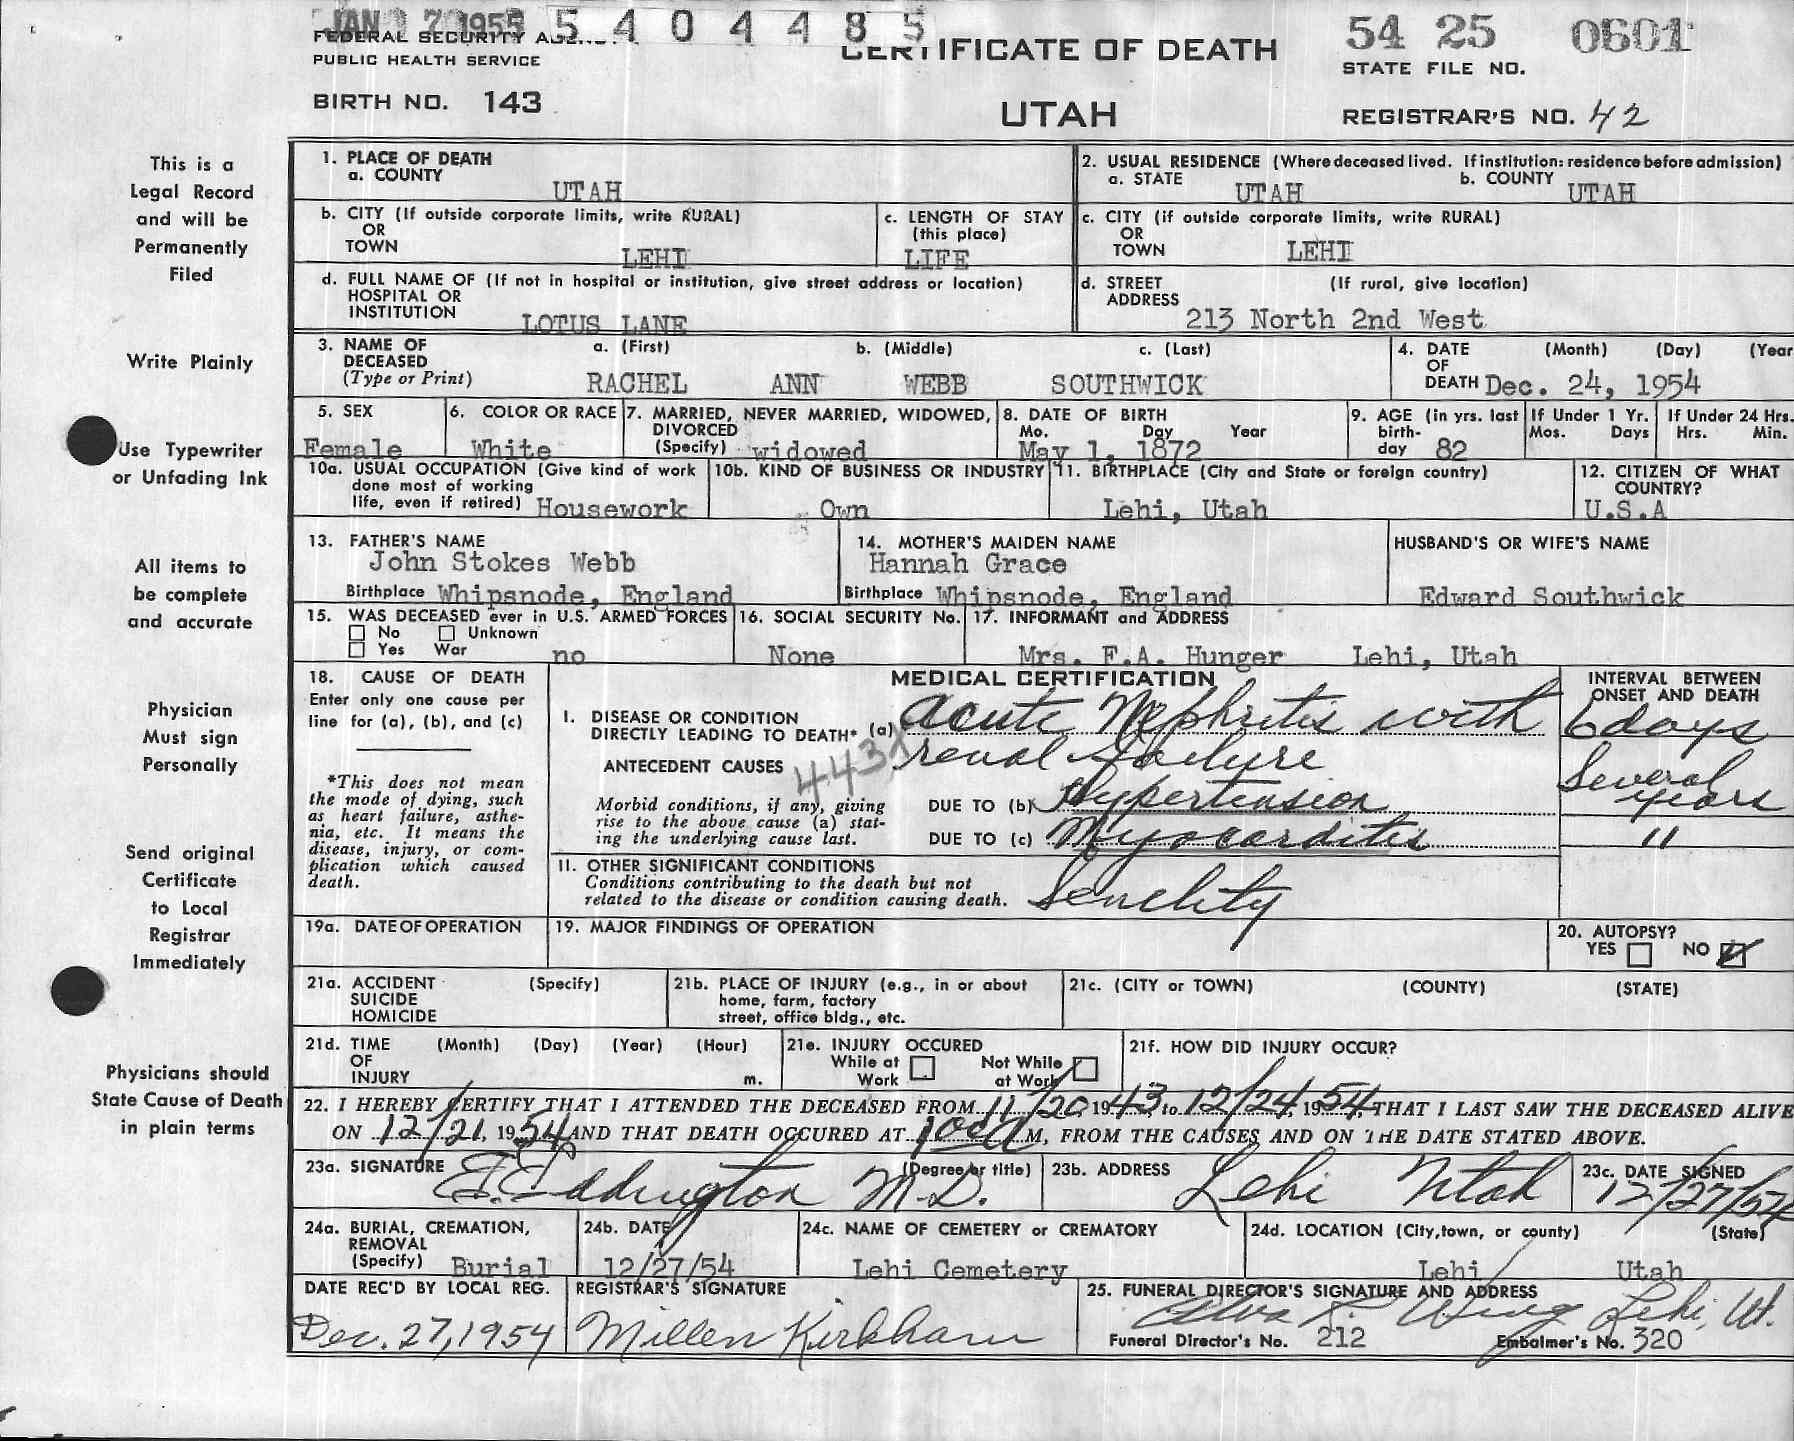 JAN 7 1955 5 4 0 4 4 8 5
54 25 0601
FEDERAL SECURITY
CERTIFICATE OF DEATH
PUBLIC HEALTH SERVICE
STATE FILE NO.
BIRTH NO. 143
UTAH
REGISTRAR'S NO. 42
This is a
Legal Record
and will be
Permanently
Filed
Write Plainly
Use Typewriter
or Unfading Ink
All items to
be complete
and accurate
Physician
Must sign
Personally
Send original
Certificate
to Local
Registrar
Immediately
Physicians should
State Cause of Death
in plain terms
1. PLACE OF DEATH
a. COUNTY
UTAH
2. USUAL RESIDENCE (Where deceased lived. If institution: residence before admission)
a. STATE UTAH b. COUNTY UTAH
b. CITY (If outside corporate limits, write RURAL)
OR
TOWN LEHI
c. LENGTH OF STAY
(this place)
LIFE
c. CITY (if outside corporate limits, write RURAL)
OR
TOWN LEHI
d. FULL NAME OF (If not in hospital or institution, give street address or location)
HOSPITAL OR
INSTITUTION LOTUS LANE
d. STREET (If rural, give location)
ADDRESS
213 North 2nd West
3. NAME OF a. (First) b. (Middle) c. (Last)
DECEASED
(Type or Print) RACHEL ANN WEBB SOUTHWICK
4. DATE (Month) (Day) (Year
OF
DEATH Dec. 24, 1954
5. SEX
Female
6. COLOR OR RACE
White
7. MARRIED, NEVER MARRIED, WIDOWED,
DIVORCED
(Specify) widowed
8. DATE OF BIRTH
Mo. Day Year
May 1, 1872
9. AGE (in yrs. last
birth-
day 82
If Under 1 Yr.
Mos. Days
If Under 24 Hrs.
Hrs. Min.
10a. USUAL OCCUPATION (Give kind of work
done most of working
life, even if retired) Housework
10b. KIND OF BUSINESS OR INDUSTRY
Own
11. BIRTHPLACE (City and State or foreign country)
Lehi, Utah
12. CITIZEN OF WHAT
COUNTRY?
U.S.A
13. FATHER'S NAME
John Stokes Webb
Birthplace Whipsnode, England
14. MOTHER'S MAIDEN NAME
Hannah Grace
Birthplace Whipsnode, England
HUSBAND'S OR WIFE'S NAME
Edward Southwick
15. WAS DECEASED ever in U.S. ARMED FORCES
No Unknown
Yes War no
16. SOCIAL SECURITY No.
None
17. INFORMANT and ADDRESS
Mrs. F.A. Hunger Lehi, Utah
18. CAUSE OF DEATH
Enter only one cause per
line for (a), (b), and (c)
*This does not mean
the mode of dying, such
as heart failure, asthe-
nia, etc. It means the
disease, injury, or com-
plication which caused
death.
MEDICAL CERTIFICATION
INTERVAL BETWEEN
ONSET AND DEATH
I. DISEASE OR CONDITION
DIRECTLY LEADING TO DEATH* (a) Acute Nephritis with 6 days
renal failure
ANTECEDENT CAUSES 443X
Morbid conditions, if any, giving
rise to the above cause (a) stat-
ing the underlying cause last.
DUE TO (b) Hypertension Several years
DUE TO (c) Myocarditis "
11. OTHER SIGNIFICANT CONDITIONS
Conditions contributing to the death but not
related to the disease or condition causing death. Senility
19a. DATE OF OPERATION
19. MAJOR FINDINGS OF OPERATION
20. AUTOPSY?
YES NO
21a. ACCIDENT (Specify)
SUICIDE
HOMICIDE
21b. PLACE OF INJURY (e.g., in or about
home, farm, factory
street, office bldg., etc.
21c. (CITY or TOWN) (COUNTY) (STATE)
21d. TIME (Month) (Day) (Year) (Hour)
OF
INJURY m.
21e. INJURY OCCURED
While at Not While
Work at Work
21f. HOW DID INJURY OCCUR?
22. I HEREBY CERTIFY THAT I ATTENDED THE DECEASED FROM 11/20, 1943 to 12/24, 1954 THAT I LAST SAW THE DECEASED ALIVE
ON 12/21, 1954 AND THAT DEATH OCCURED AT M, FROM THE CAUSES AND ON THE DATE STATED ABOVE.
23a. SIGNATURE (Degree or title)
Eddington M.D.
23b. ADDRESS
Lehi Utah
23c. DATE SIGNED
12/27/54
24a. BURIAL, CREMATION,
REMOVAL
(Specify) Burial
24b. DATE
12/27/54
24c. NAME OF CEMETERY or CREMATORY
Lehi Cemetery
24d. LOCATION (City, town, or county) (State)
Lehi Utah
DATE REC'D BY LOCAL REG.
Dec. 27, 1954
REGISTRAR'S SIGNATURE
Millen Kirkham
25. FUNERAL DIRECTOR'S SIGNATURE AND ADDRESS
Wing Lehi, Ut.
Funeral Director's No. 212 Embalmer's No. 320